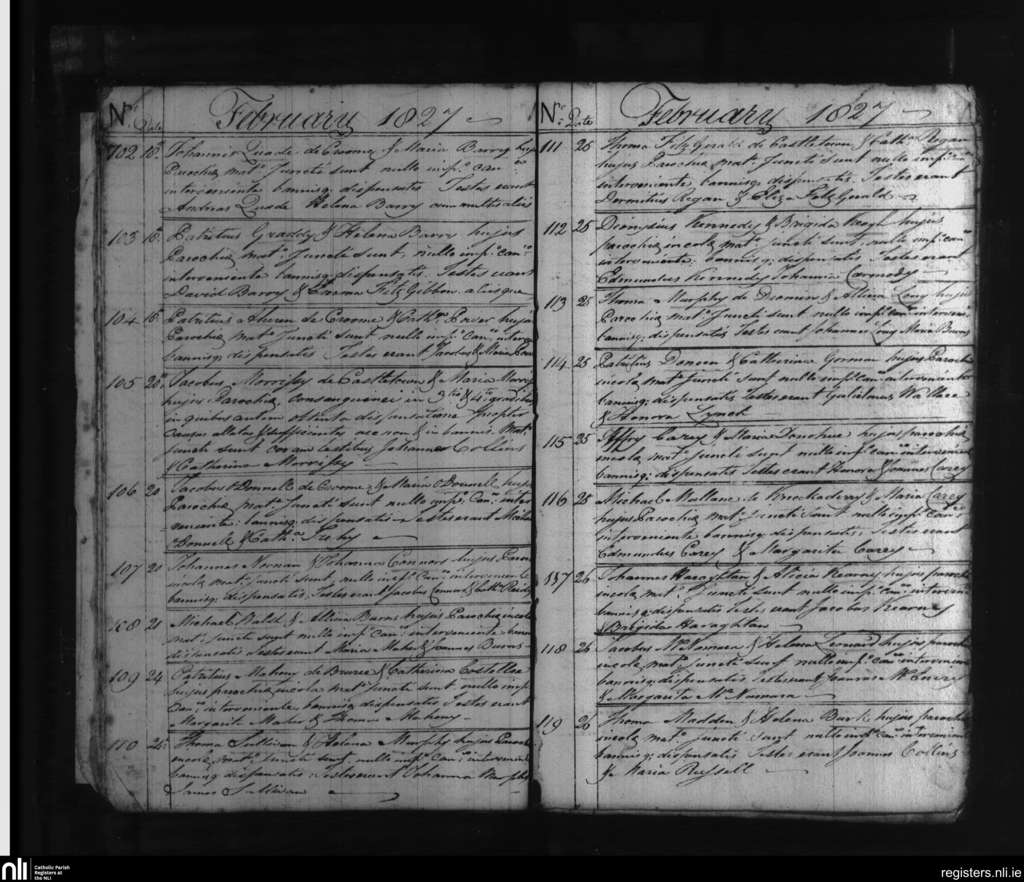 No. Date February 1827
102 15 Johannes Quade de Croome & Maria Barry hujus
Parochiæ mat. Juncti sunt nullo imp. can.
interveniente bannisq; dispensatis Testes erant
Andreas Quade Helena Barry cum multis aliis
103 15 Patritius Graddy & Helena Barry hujus
Parochiæ mat. Juncti sunt, nullo imp. can.
interveniente bannisq; dispensatis. Testes erant
David Barry & Fitz Gibbon aliisque
104 15 Patritius Ahern de Croome & Cath. hujus
Parochiæ mat. Juncti sunt nullo imp. Can. interv
bannisq; dispensatis Testes erant Jacobus & Maria
105 20 Jacobus Morrissy de Castletown & Maria
hujus Parochiæ, consanguinei in 3tio & 4to gradibus
in quibus autem obtenta dispensatione propter
causas allatas & sufficientes nec non & in bannis Mat.
Juncti sunt coram testibus Johannes Collins
& Catherina Morrissy
106 20 Jacobus O Donnell de Croome & Maria O Donnell hujus
Parochiæ mat. Juncti sunt nullo imp. Can. inter
veniente bannisq; dispensatis Testes erant
Donnell & Cath.
107 20 Johannes Noonan & Johanna Connors hujus Paroc
incolæ mat. Juncti sunt, nullo imp. Can. interveniente
bannisq; dispensatis. Testes erant Jacobus Connors & Cath.
108 21 Michael Wald & Alicia Burns hujus Parochiæ incolæ
mat. juncti sunt nullo imp. Can. interveniente
dispensatis Testes erant Maria Maher & Joannes Burns
109 24 Patritius Mahony de Bruree & Catherina Costelloe
hujus parochiæ incolæ mat. juncti sunt nullo imp.
Can. interveniente bannisq; dispensatis Testes erant
Margarit Maher & Thomas Mahony
110 25 Thoma Sullivan & Helena Murphy hujus Paroch
incolæ mat. Juncti sunt nullo imp. Can. intervenient
bannisq; dispensatis. Testes erant Johanna Murphy
James Sullivan
No. Date February 1827
111 25 Thoma FitzGerald de Castletown & Cath. Regan
hujus Parochiæ mat. Juncti sunt nullo imp.
interveniente, bannisq; dispensatis. Testes erant
Dermitius Regan & Eliza FitzGerald
112 25 Dionysius Kennedy & Brigida Keogh hujus
parochiæ incolæ mat. juncti sunt, nullo imp. can.
interveniente, bannisq; dispensatis Testes erant
Edmundus Kennedy Johanna Carmody
113 25 Thoma Murphy de Dromin & Alicia Long hujus
Parochiæ mat. Juncti sunt nullo imp. can. interven
bannisq; dispensatis Testes erant Johannes Long Maria Burns
114 25 Patritius Doncon & Catharina Gorman hujus Parochi
incolæ mat. juncti sunt nullo imp. can. interveniente
bannisq; dispensatis Testes erant Gulielmus Wallace
& Honora
115 25 Carey & Maria Donohue hujus parochiæ
incolæ mat. juncti sunt nullo imp. can. interveniente
bannisq; dispensatis Testes erant Honora & Joannes Carey
116 25 Michael Mullane de Knockaderry & Maria Carey
hujus Parochiæ mat. Juncti sunt nullo imp. can.
interveniente bannisq; dispensatis, Testes erant
Edmundus Carey & Margarita Carey
117 26 Johannes Haraghton & Alicia Kearney hujus paroch
incolæ mat. juncti sunt nullo imp. can. interveni
bannisq; dispensatis Testes erant Jacobus Kearney
& Brigida Haraghton
118 26 Jacobus McNamara & Helena Leonard hujus paroch
incolæ mat. juncti sunt nullo imp. can. intervenien
bannisq; dispensatis. Testes erant & Joannes
& Margarita McNamara
119 26 Thoma Madden & Helena Burk hujus paroch
incolæ mat. juncti sunt nullo imp. can. intervenien
bannisq; dispensatis Testes erant Joannes Collins
& Maria Russell
nli Catholic Parish
Registers at
the NLI
registers.nli.ie